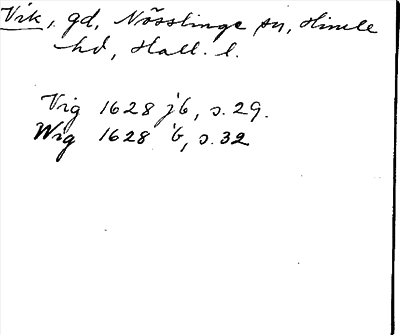 Vik, gd, Nösslinge sn, Himle
hd, Hall. l.
Vig 1628 jb, s. 29.
Wig 1628 b, s. 32